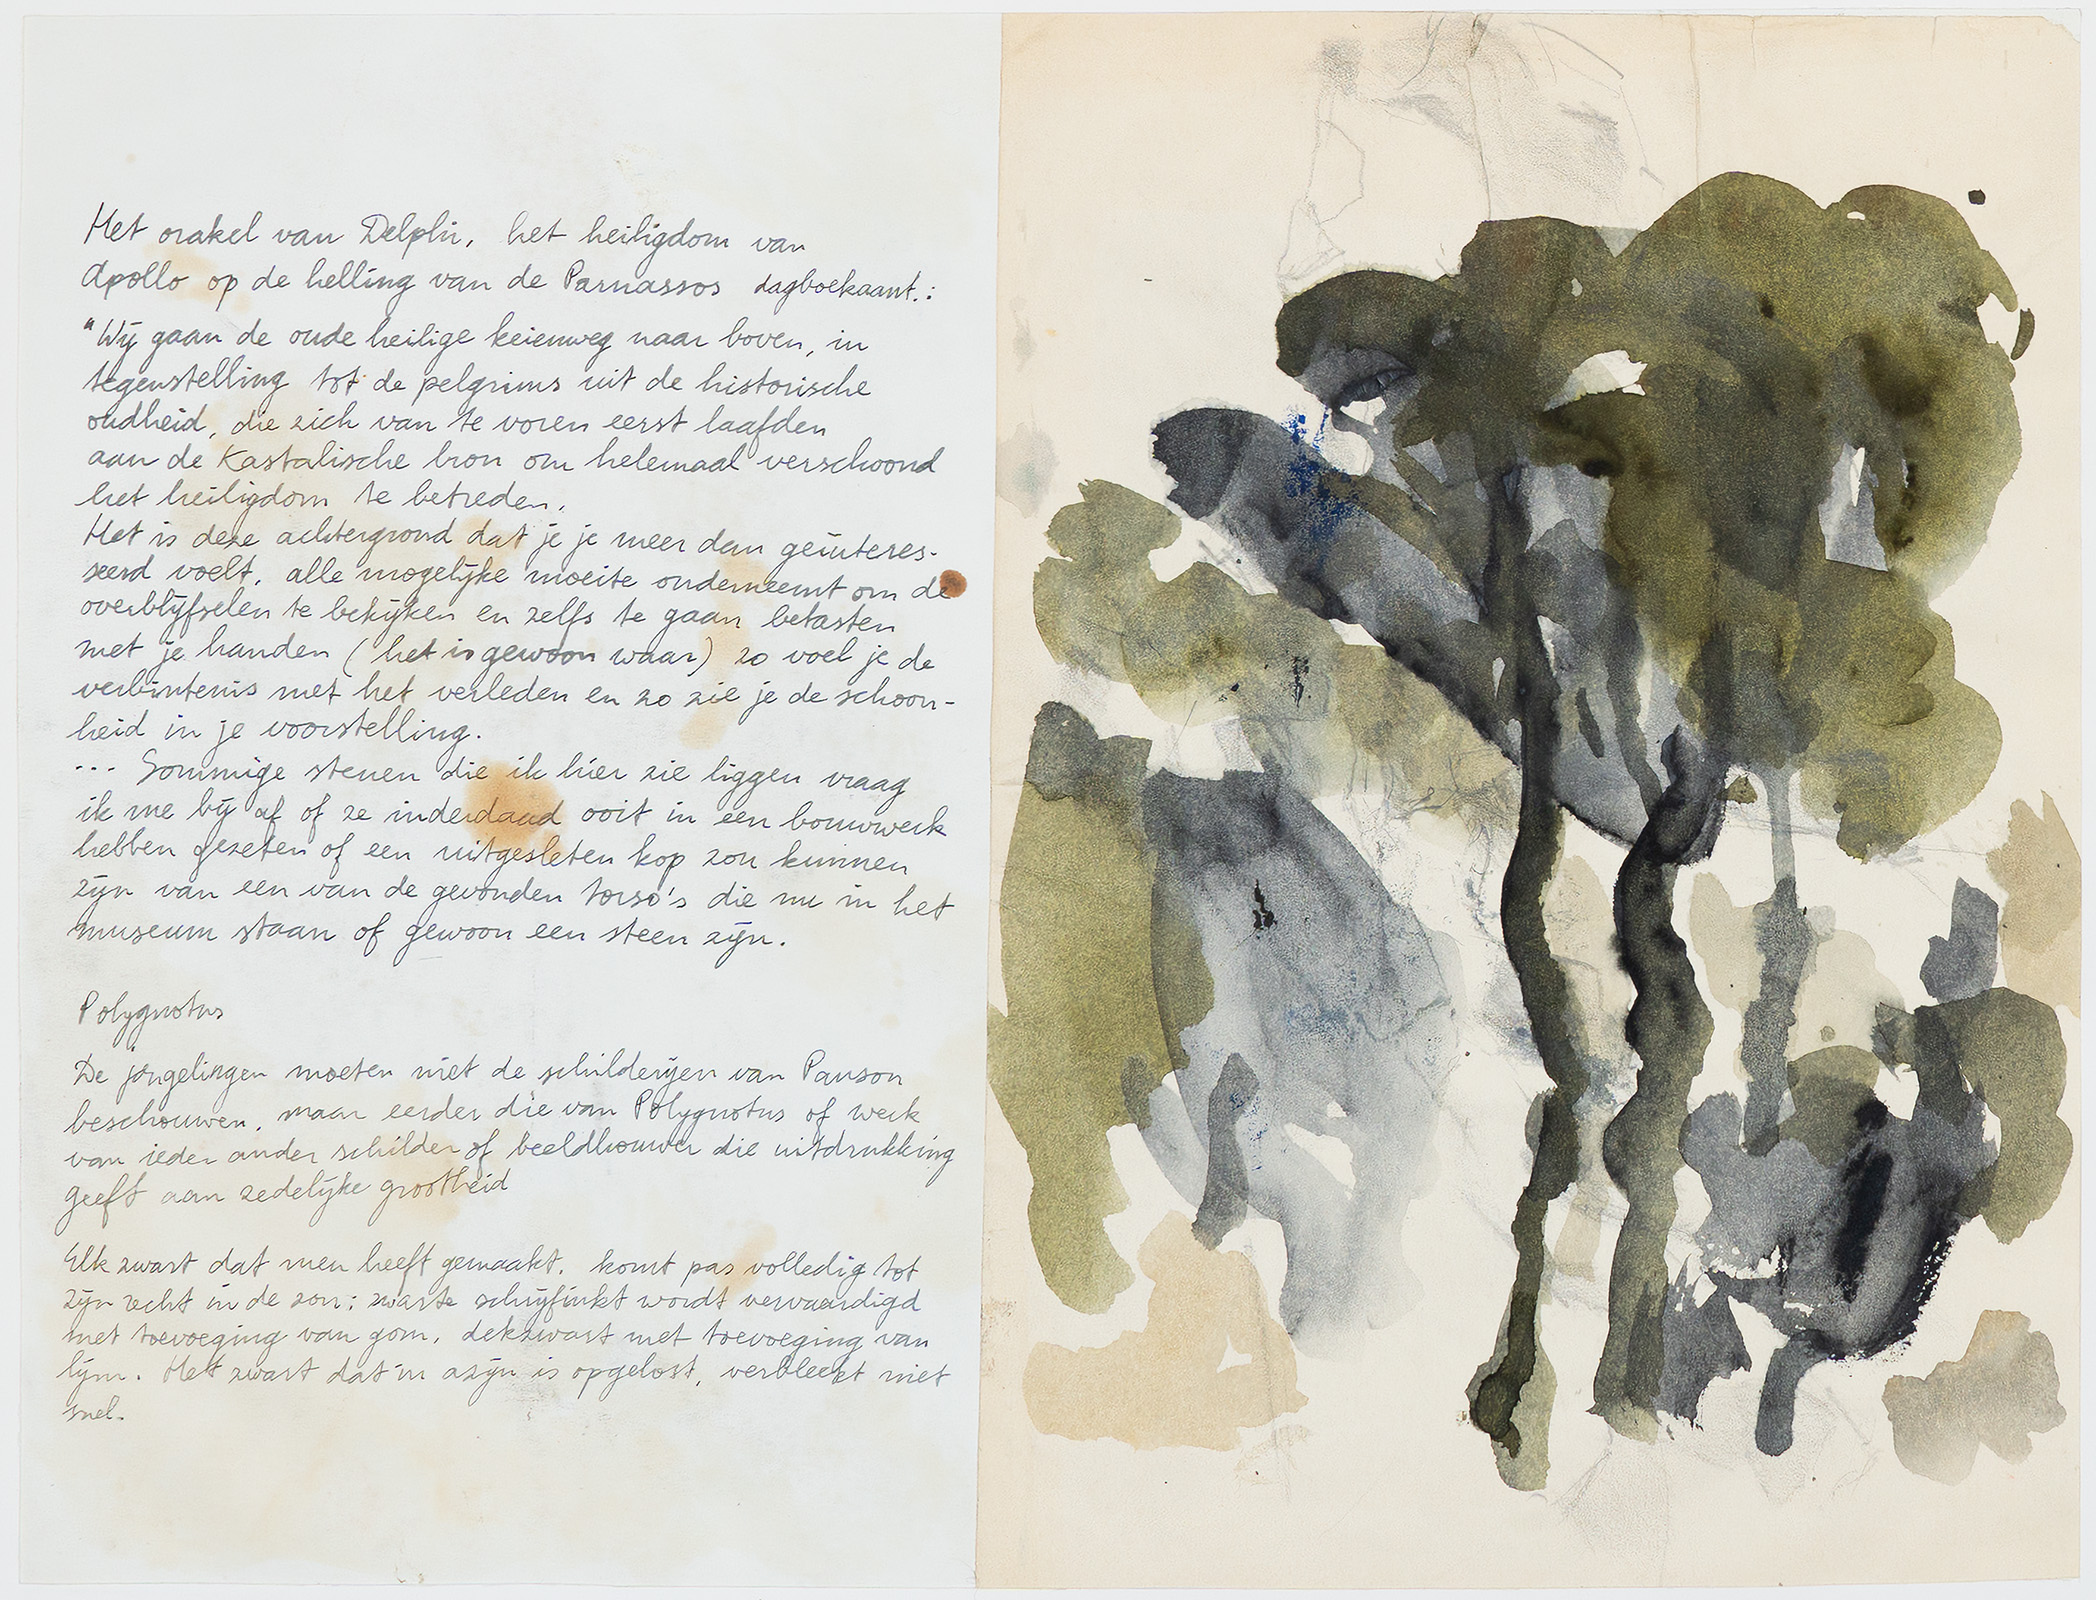 Het orakel van Delphi, het heiligdom van
Apollo op de helling van de Parnassos dagboekaant.:
"Wij gaan de oude heilige keienweg naar boven, in
tegenstelling tot de pelgrims uit de historische
oudheid, die zich van te voren eerst laafden
aan de Kastalische bron om helemaal verschoond
het heiligdom te betreden.
Het is deze achtergrond dat je je meer dan geïnteres-
seerd voelt, alle mogelijke moeite onderneemt om de
overblijfselen te bekijken en zelfs te gaan betasten
met je handen (het is gewoon waar) zo voel je de
verbintenis met het verleden en zo zie je de schoon-
heid in je voorstelling.
... Sommige stenen die ik hier zie liggen vraag
ik me bij af of ze inderdaad ooit in een bouwwerk
hebben gezeten of een uitgesleten kop zou kunnen
zijn van een van de gevonden torso's die nu in het
museum staan of gewoon een steen zijn.
Polygnotus
De jongelingen moeten niet de schilderijen van Pauson
beschouwen, maar eerder die van Polygnotus of werk
van ieder ander schilder of beeldhouwer die uitdrukking
geeft aan zedelijke grootheid
Elk zwart dat men heeft gemaakt, komt pas volledig tot
zijn recht in de zon: zwarte schrijfinkt wordt vervaardigd
met toevoeging van gom, dekzwart met toevoeging van
lijm. Het zwart dat in azijn is opgelost, verbleekt niet
snel.